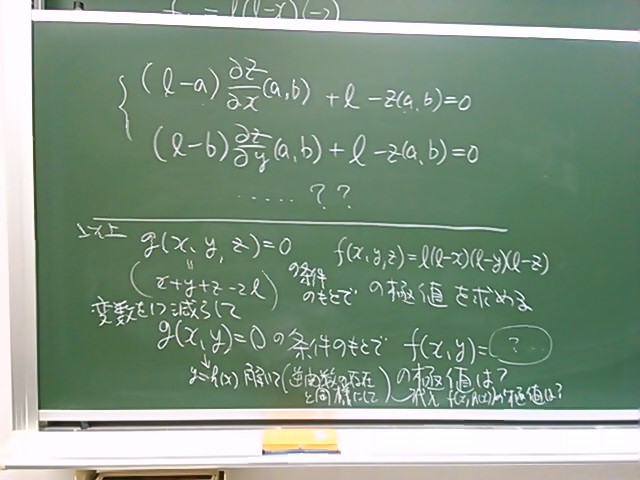 (l-a) ∂z/∂x (a,b) + l - z(a,b) = 0
(l-b) ∂z/∂y (a,b) + l - z(a,b) = 0
..... ??
以上 g(x, y, z) = 0 f(x,y,z) = l(l-x)(l-y)(l-z)
(x+y+z-2l) の条件のもとで の極値を求める
変数を1つ減らして
g(x,y)=0 の条件のもとで f(x,y)= ?
y=h(x) 解いて(逆関数の存在と同様にして) の極値は?
代入 f(x,h(x))の極値は?